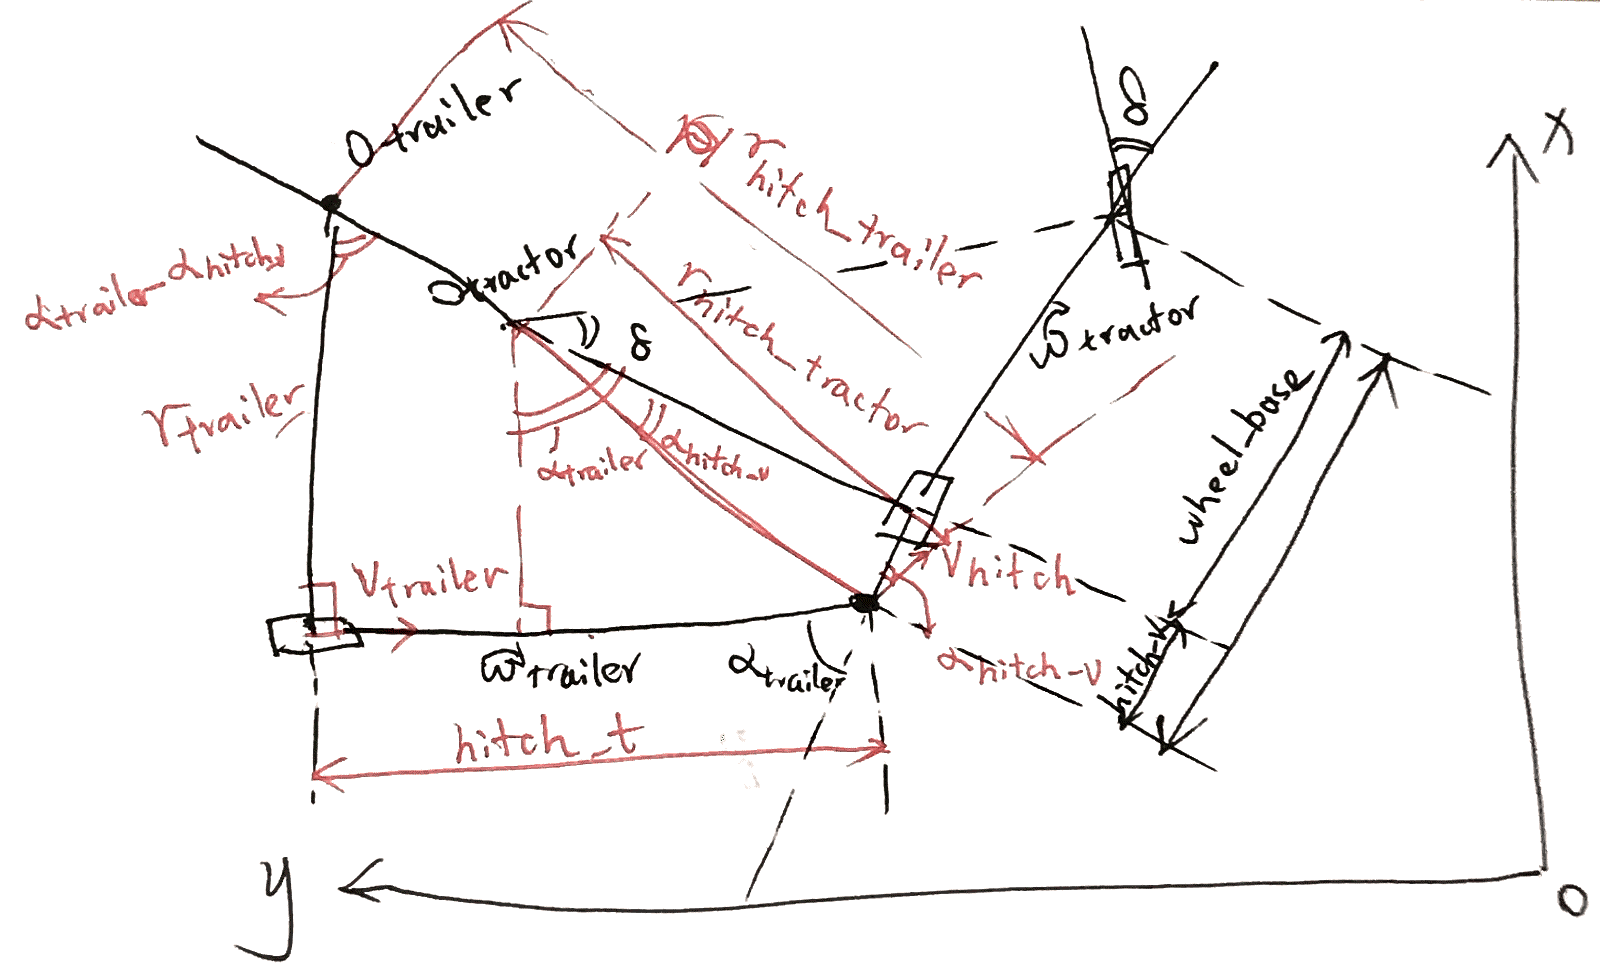 δ
X
O trailer
r hitch_trailer
α trailer - α hitch_v
O tractor
δ
r hitch_tractor
ω tractor
r trailer
α trailer
α hitch_v
wheel_base
V trailer
V hitch
ω trailer
α trailer
α hitch-v
hitch_v
hitch_t
y
O